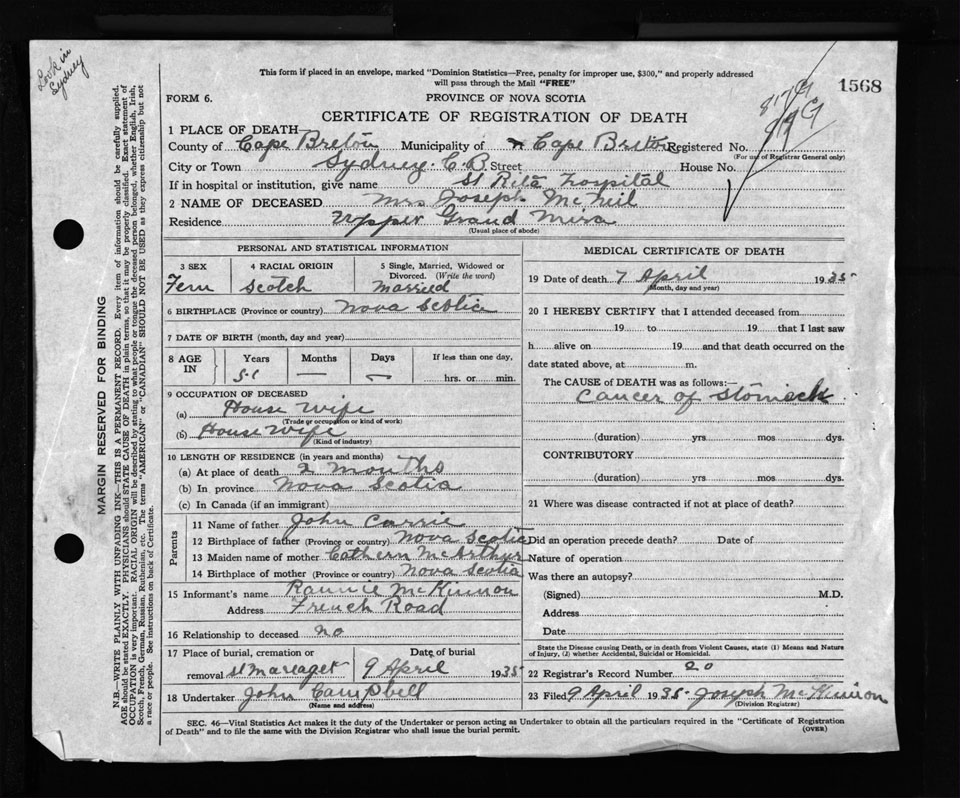 Look in
Sydney
This form if placed in an envelope, marked "Dominion Statistics—Free, penalty for improper use, $300," and properly addressed
will pass through the Mail "FREE"
1568
FORM 6.
PROVINCE OF NOVA SCOTIA
CERTIFICATE OF REGISTRATION OF DEATH
1 PLACE OF DEATH
County of Cape Breton Municipality of Cape Breton Registered No.
(For use of Registrar General only)
City or Town Sydney. C.B. Street House No.
If in hospital or institution, give name St Rita Hospital
2 NAME OF DECEASED Mrs Joseph McNeil
Residence Upper Grand Mira
(Usual place of abode)
PERSONAL AND STATISTICAL INFORMATION
3 SEX
Fem
4 RACIAL ORIGIN
Scotch
5 Single, Married, Widowed or
Divorced. (Write the word)
Married
6 BIRTHPLACE (Province or country) Nova Scotia
7 DATE OF BIRTH (month, day and year)
8 AGE IN
Years Months Days If less than one day,
51 — — hrs. or min.
9 OCCUPATION OF DECEASED
(a) House wife
(Trade or occupation or kind of work)
(b) House wife
(Kind of industry)
10 LENGTH OF RESIDENCE (in years and months)
(a) At place of death 2 months
(b) In province Nova Scotia
(c) In Canada (if an immigrant)
Parents
11 Name of father John Carrie
12 Birthplace of father (Province or country) Nova Scotia
13 Maiden name of mother Cathern McArthur
14 Birthplace of mother (Province or country) Nova Scotia
15 Informant's name Rannie McKinnon
Address French Road
16 Relationship to deceased no
17 Place of burial, cremation or
removal St Mareaget
Date of burial
9 April 1935
18 Undertaker John Campbell
(Name and address)
MEDICAL CERTIFICATE OF DEATH
19 Date of death 7 April 1935
(Month, day and year)
20 I HEREBY CERTIFY that I attended deceased from
19 to 19 that I last saw
h alive on 19 and that death occurred on the
date stated above, at m.
The CAUSE of DEATH was as follows:—
Cancer of Stomack
(duration) yrs mos dys.
CONTRIBUTORY
(duration) yrs mos dys.
21 Where was disease contracted if not at place of death?
Did an operation precede death? Date of
Nature of operation
Was there an autopsy?
(Signed) M.D.
Address
Date
State the Disease causing Death, or in death from Violent Causes, state (1) Means and Nature
of Injury, (J) whether Accidental, Suicidal or Homicidal.
22 Registrar's Record Number 20
23 Filed 9 April 1935 Joseph McKinnon
(Division Registrar)
SEC. 46—Vital Statistics Act makes it the duty of the Undertaker or person acting as Undertaker to obtain all the particulars required in the "Certificate of Registration
of Death" and to file the same with the Division Registrar who shall issue the burial permit.
(OVER)
MARGIN RESERVED FOR BINDING
N.B.—WRITE PLAINLY WITH UNFADING INK—THIS IS A PERMANENT RECORD. Every item of information should be carefully supplied.
AGE should be stated EXACTLY. PHYSICIANS should STATE CAUSE OF DEATH in plain terms, so that it may be properly classified. Exact statement of
OCCUPATION is very important. RACIAL ORIGIN will be described by stating to what people or tongue the deceased person belonged, whether English, Irish,
Scotch, French, German, Russian, Ruthenian, etc. The terms "AMERICAN" or "CANADIAN" SHOULD NOT BE USED as they express citizenship but not
a race or people. See instructions on back of Certificate.